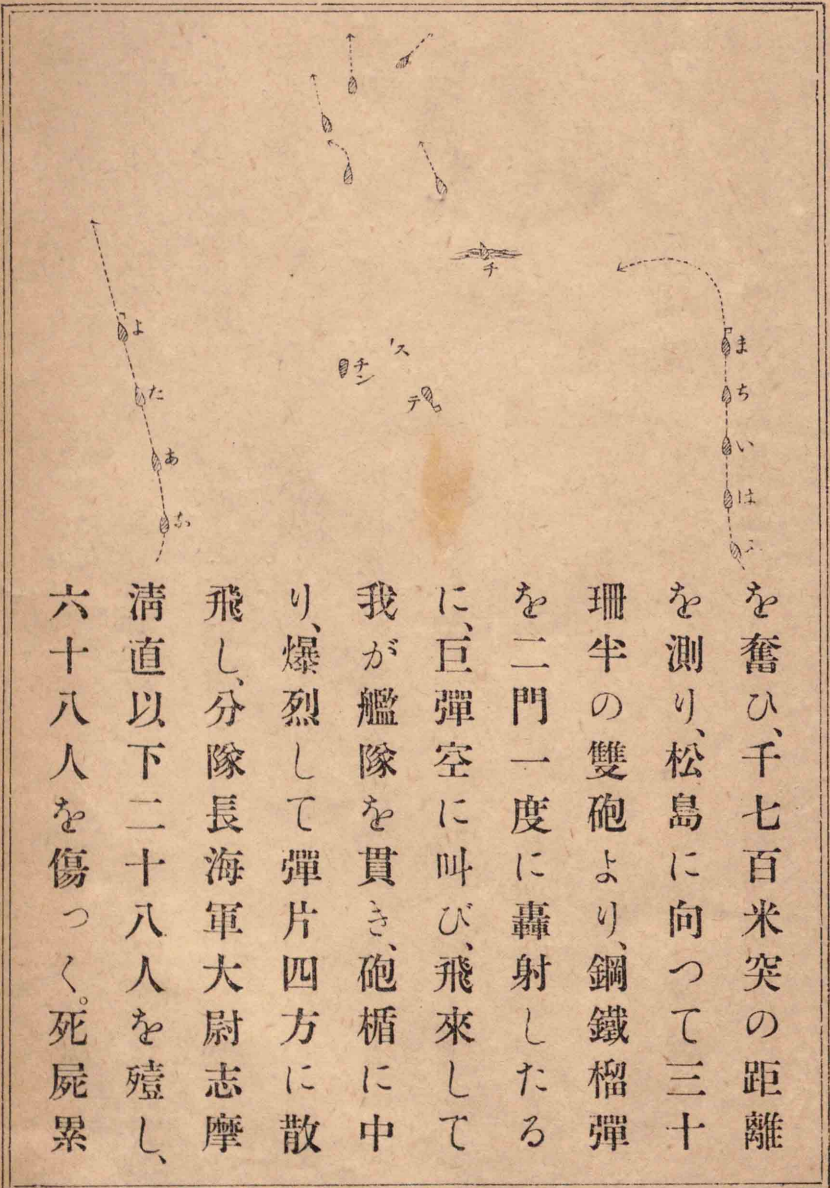 チ
ス
チン
テ
ま
ち
い
は
よ
た
あ
を奮ひ、千七百米突の距離
を測り、松島に向つて三十
珊半の雙砲より、鋼鐵榴彈
を二門一度に轟射したる
に、巨彈空に叫び、飛來して
我が艦隊を貫き、砲楯に中
り、爆烈して彈片四方に散
飛し、分隊長海軍大尉志摩
淸直以下二十八人を殪し、
六十八人を傷つく。死屍累